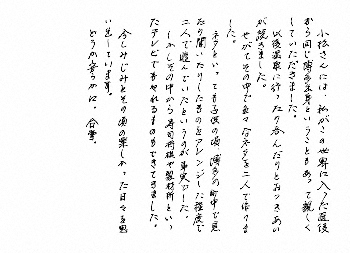 小松さんには、私がこの世界に入った直後
から同じ博多出身ということもあって親しく
していただきました。
以後温泉に行ったり呑んだりとおつきあい
が続きました。
やがてその中で色々なネタを二人で作りま
した。
ネタといっても子供の頃、博多の町中で見
たり聞いたりしたものをアレンジした程度で
二人で遊んでいたというのが事実でした。
しかしその中から寿司将棋や製材所といっ
たテレビでもやれるものもできてきました。
今しみじみとその頃の楽しかった日々を思
い出しています。
どうか安らかに。合掌。